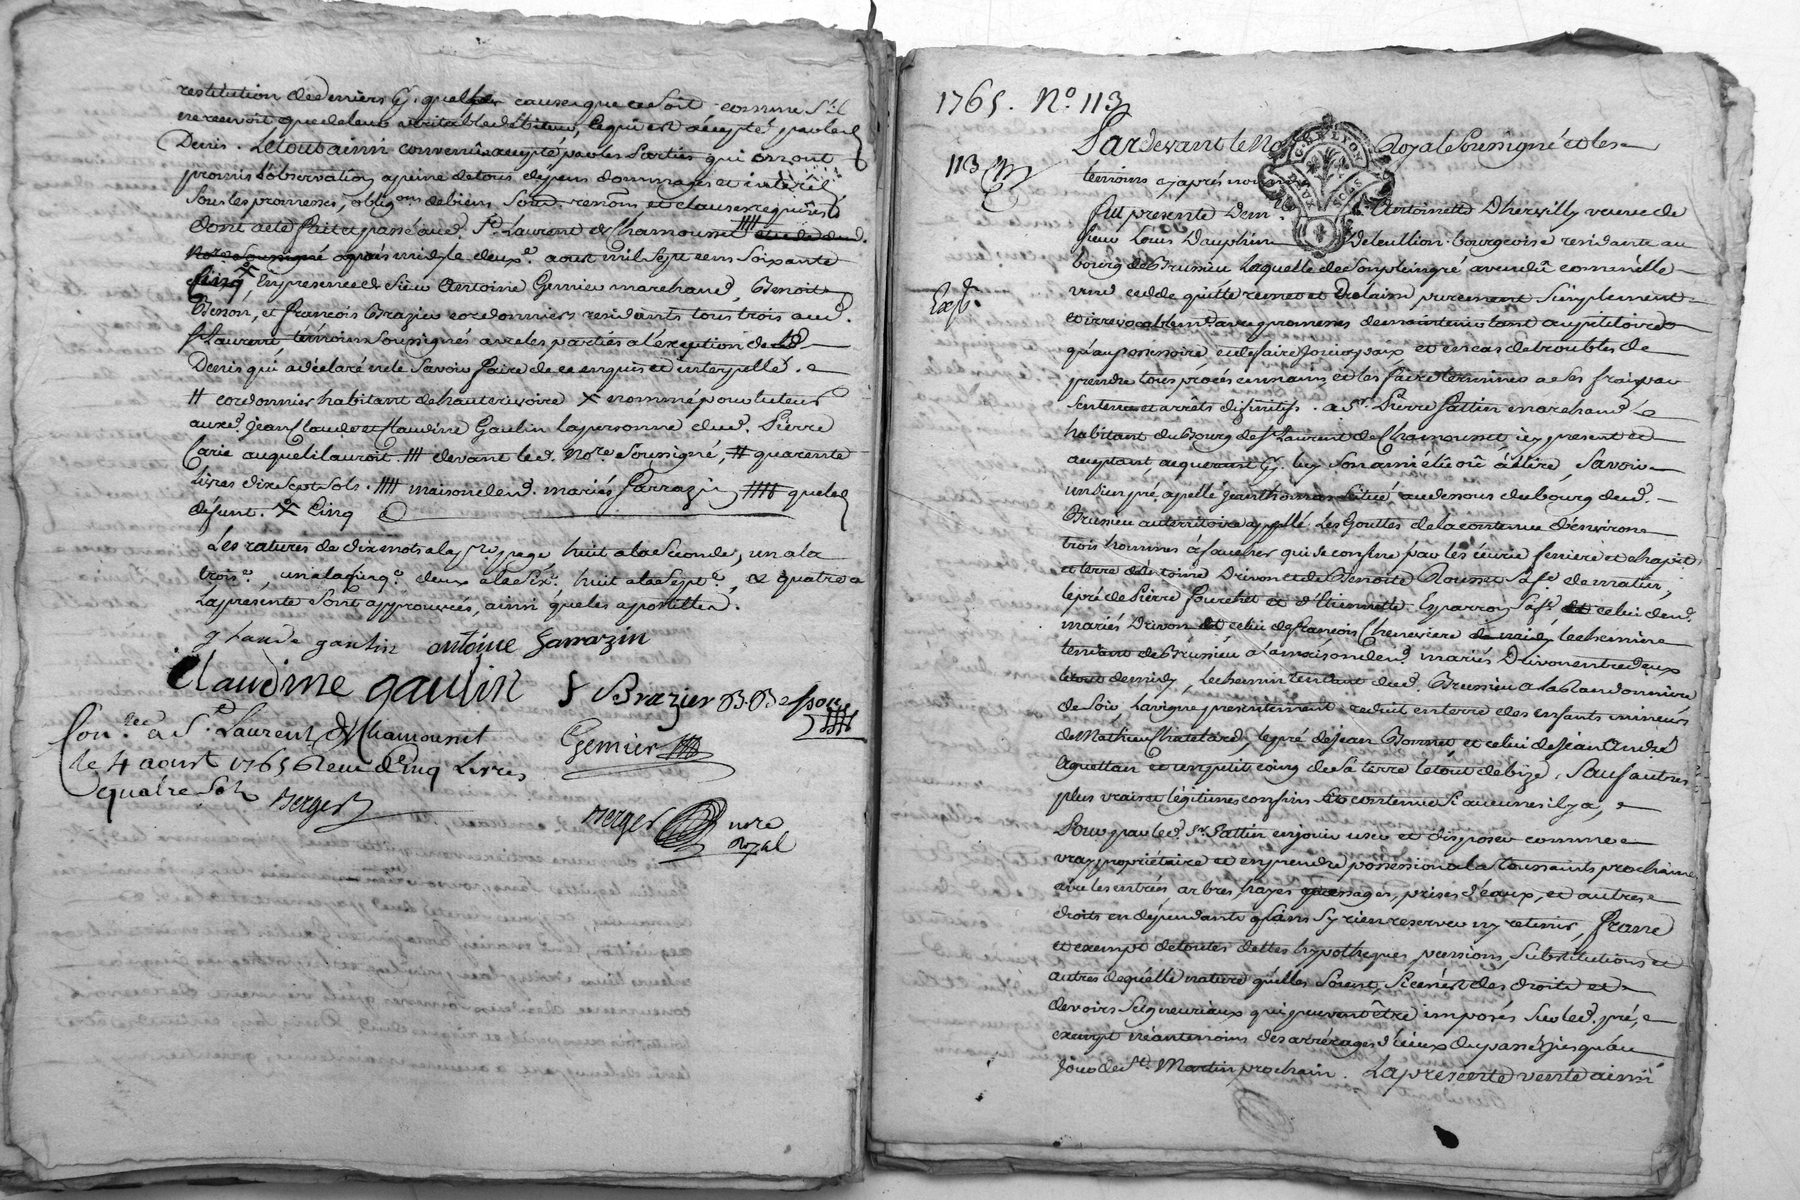 restitution de deniers &. quelque cause que ce soit comme s'il
ne recevoit que de leur véritable débiteur, ce qui est accepté par led.
Denis. Le tout ainsi convenu accepté par les parties qui en ont
promis l'observation a peine de tous depens dommages et interêt
sous les promesses, obligons de biens soum. renons et clauses requises
dont acte fait et passé aud. St. Laurent de Chamousset
nore soussigné après midy le deuxe. aout mil sept cens soixante
cinq, en presence de sieur Antoine Gemier marchand, Benoit
Besson, et François Brazier cordonniers residants tous trois aud.
St Laurent, témoins soussignés avec les parties a l'exception dud.
Denis qui a déclaré ne le savoir faire de ce enquis et interpellé.
# cordonnier habitant de hauterivoire X nommé pour tuteur
auxd. Jean Claude et Claudine Gaulin la personne dud. Pierre
Carie auquel il auroit devant led. nore soussigné, # quarente
livres dix sept sols. maison desd. mariés Sarrazin queled
défunt. X Cinq
Les ratures de dix mots a la pre. page, huit a la seconde, un a la
trois.e, un a la cinq.e deux a la six.e huit a la sept.e, & quatre a
la présente sont approuvées, ainsi que les apostilles.
glaude gaulin antoine Sarrazin
Claudine gaulin f Brazier B. Besson
Con.lee a St. Laurent de Chamousset
le 4 aout 1765 Reçu Cinq Livres
quatre sols Berger
Gemier
Berger nore
Royal
1765. No. 113
Pardevant le No Royal Soussigné et les
113
temoins cyaprès nom
fut presente Dem. Antoinette Dhervilly veuve de
sieur Louis Dauphin Deteullion bourgeoise residante au
bourg de Brussieu laquelle de son plein gré a vendû comme elle
vend cedde quitte remet et Delaisse, purement simplement
Exp.
et irrevocablemt. avec promesses de maintenir tant au petitoire
qu'au possessoire, et de faire jouir en paix et en cas de troubles de
prendre tous procès en mains et les faire terminer a ses frais par
sentences et arrêts difinitifs. a Sr. Pierre Pattin marchand
habitant du Bourg de St. Laurent de Chamousset, icy present et
acceptant acquerant &. luy son ami élu où à élire, Savoir
un sien pré, apellé Jean thomas situé au dessous du bourg dud.
Brussieu au territoire appellé Les Gouttes de la contenue d'environ
trois hommes à faucher qui se confine par les écurie feniere et chapit
et terre d'Antoine Drivon et de Benoite Rousset sa fe. de matin,
le pré de Pierre Fourchet et d'Etiennette Esparron sa fe. et celui desd.
mariés Drivon et celui de françois Cheneviere de midy le chemin
tendant de Brussieu a la maison desd. mariés Drivon entre deux
le tout de midy, le chemin tendant dud. Brussieu a la Randonniere
de soir, la vigne presentement reduit en terre des enfants mineurs
de Mathieu Chatelard, le pré de Jean Bonnet et celui de Jean André
aguettan et un petit coing de sa terre le tout de bize, Sauf autres
plus vrais et légitimes confins et contenue si aucunes il y a,
Pour par led. Sr. Pattin en jouir user et disposer comme
vray propriétaire et en prendre possession a la Toussaints prochaine
avec les entrées arbres, hayes passages, prises d'eaux, et autres
droits en dépendants sans s'y rien reserver ny retenir, franc
et exempt de toutes dettes hypotheques, pensions, substitutions et
autres de quelle nature qu'elles soient, si ce n'est des droits et
devoirs Seigneuriaux qui peuvent être imposés sur led. pré,
exempt néantmoins des arrérages d'iceux du passé jusqu'au
jour de St. Martin prochain. La presente vente ainsi